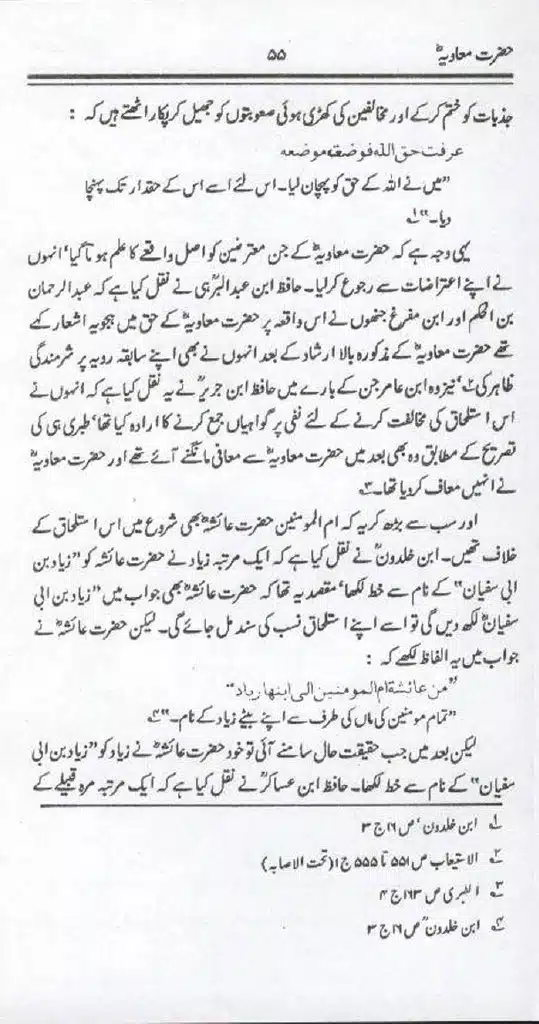 حضرت معاویہؓ ۵۵
جذبات کو ختم کرکے اور مخالفین کی کھڑی ہوئی صعوبتوں کو جھیل کر پکار اٹھتے ہیں کہ :
عرفت حق اللہ فوضعتہ موضعہ
"میں نے اللہ کے حق کو پہچان لیا۔ اس لئے اسے اس کے حقدار تک پہنچا
دیا۔" ۱؎
یہی وجہ ہے کہ حضرت معاویہؓ کے جن معترضین کو اصل واقعے کا علم ہوتا گیا' انہوں
نے اپنے اعتراضات سے رجوع کرلیا۔ حافظ ابن عبدالبرؒ ہی نے نقل کیا ہے کہ عبدالرحمان
بن الحکم اور ابن مفرغ جنھوں نے اس واقعہ پر حضرت معاویہؓ کے حق میں ہجویہ اشعار کہے
تھے حضرت معاویہؓ کے مذکورہ بالا ارشاد کے بعد انہوں نے بھی اپنے سابقہ رویہ پر شرمندگی
ظاہر کی ۲؎' نیز وہ ابن عامر جن کے بارے میں حافظ ابن جریرؒ نے یہ نقل کیا ہے کہ انہوں نے
اس استلحاق کی مخالفت کرنے کے لئے نفی پر گواہیاں جمع کرنے کا ارادہ کیا تھا' طبری ہی کی
تصریح کے مطابق وہ بھی بعد میں حضرت معاویہؓ سے معافی مانگنے آئے تھے اور حضرت معاویہؓ
نے انہیں معاف کردیا تھا۔ ۳؎
اور سب سے بڑھ کر یہ کہ ام المومنین حضرت عائشہؓ بھی شروع میں اس استلحاق کے
خلاف تھیں۔ ابن خلدونؒ نے نقل کیا ہے کہ ایک مرتبہ زیاد نے حضرت عائشہ کو "زیاد بن
ابی سفیان" کے نام سے خط لکھا' مقصد یہ تھا کہ حضرت عائشہؓ بھی جواب میں "زیاد بن ابی
سفیان" لکھ دیں گی تو اسے اپنے استلحاق نسب کی سند مل جائے گی۔ لیکن حضرت عائشہؓ نے
جواب میں یہ الفاظ لکھے کہ :
"من عائشۃ ام المومنین الی ابنھا زیاد"
"تمام مومنین کی ماں کی طرف سے اپنے بیٹے زیاد کے نام۔" ۴؎
لیکن بعد میں جب حقیقت حال سامنے آئی تو خود حضرت عائشہؓ نے زیاد کو "زیاد بن ابی
سفیان" کے نام سے خط لکھا۔ حافظ ابن عساکرؒ نے نقل کیا ہے کہ ایک مرتبہ مرہ قبیلے کے
۱؎ ابن خلدون' ص ۱۶ ج ۳
۲؎ الاستیعاب ص ۵۵۱ تا ۵۵۵ ج ۱ (تحت الاصابہ)
۳؎ الطبری ص ۱۶۳ ج ۴
۴؎ ابن خلدونؒ ص ۱۶ ج ۳